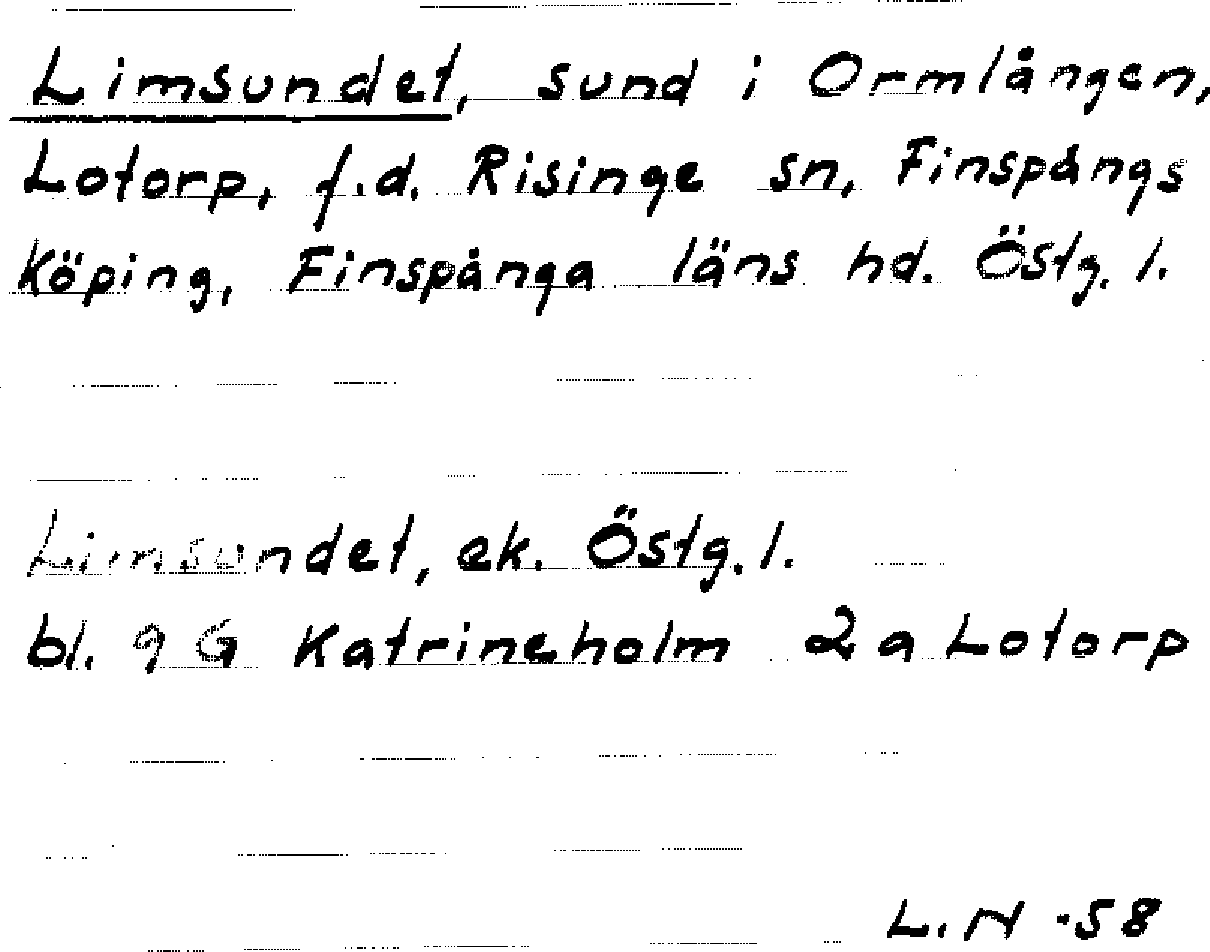 Limsundet, sund i Ormlången,
Lotorp, f.d. Risinge sn, Finspångs
Köping, Finspånga läns hd. Östg. l.
Limsundet, ek. Östg. l.
bl. 9 G Katrineholm 2a Lotorp
L. N -58